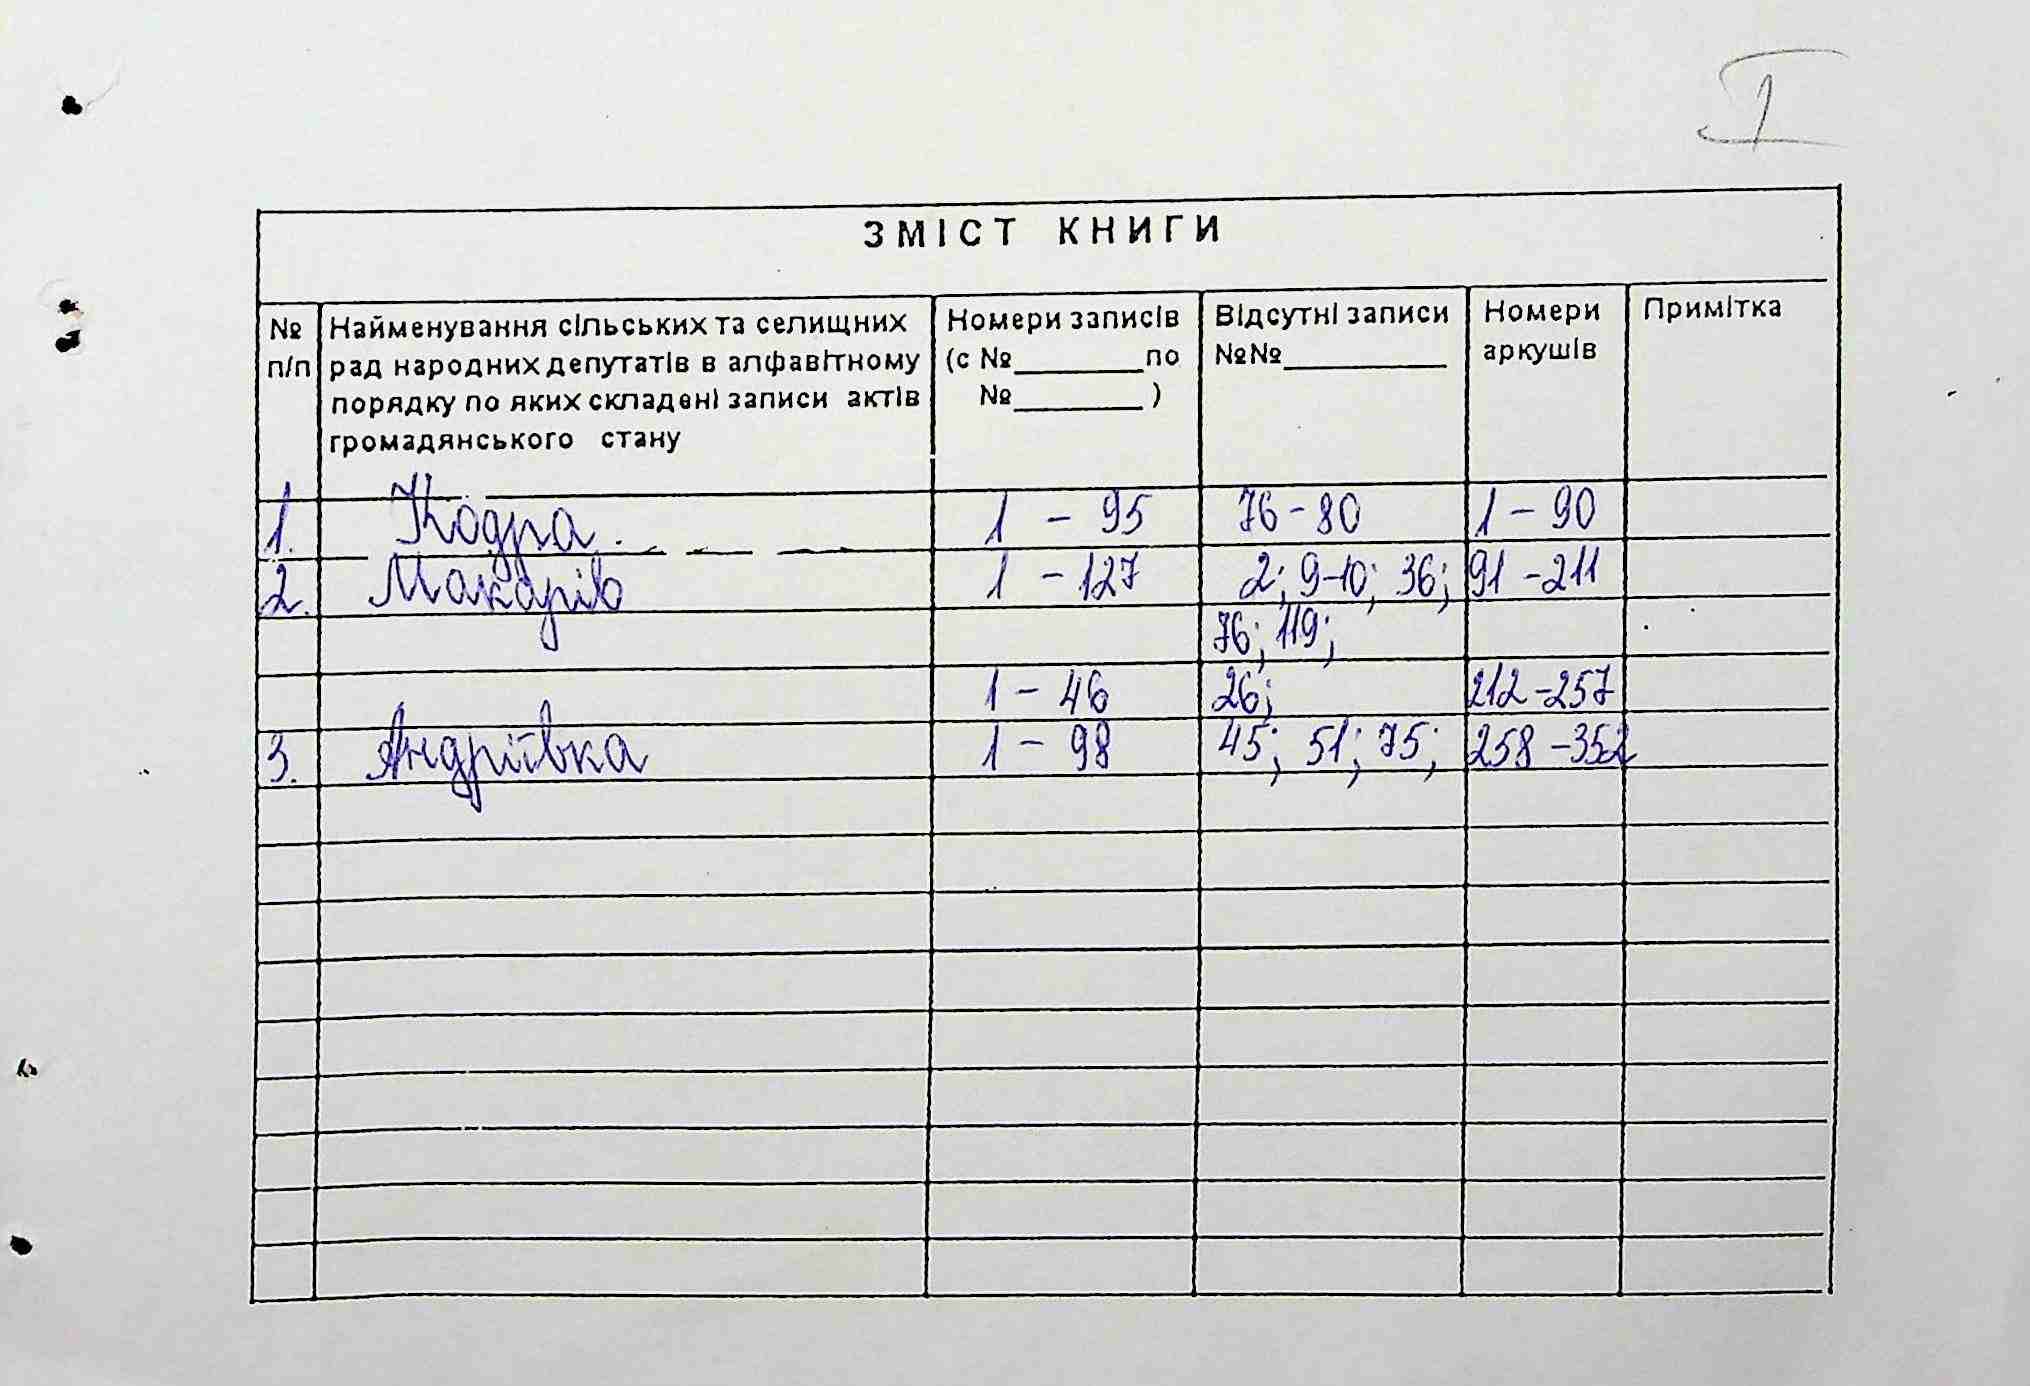 I
ЗМІСТ КНИГИ
№ п/п Найменування сільських та селищних рад народних депутатів в алфавітному порядку по яких складені записи актів громадянського стану Номери записів (с №________по №________) Відсутні записи №№__________ Номери аркушів Примітка
1. Кодра. 1 – 95 76 – 80 1 – 90
2. Макарів 1 – 127 2; 9–10; 36; 91 – 211
76; 119;
1 – 46 26; 212 – 257
3. Андріївка 1 – 98 45; 51; 75; 258 – 352